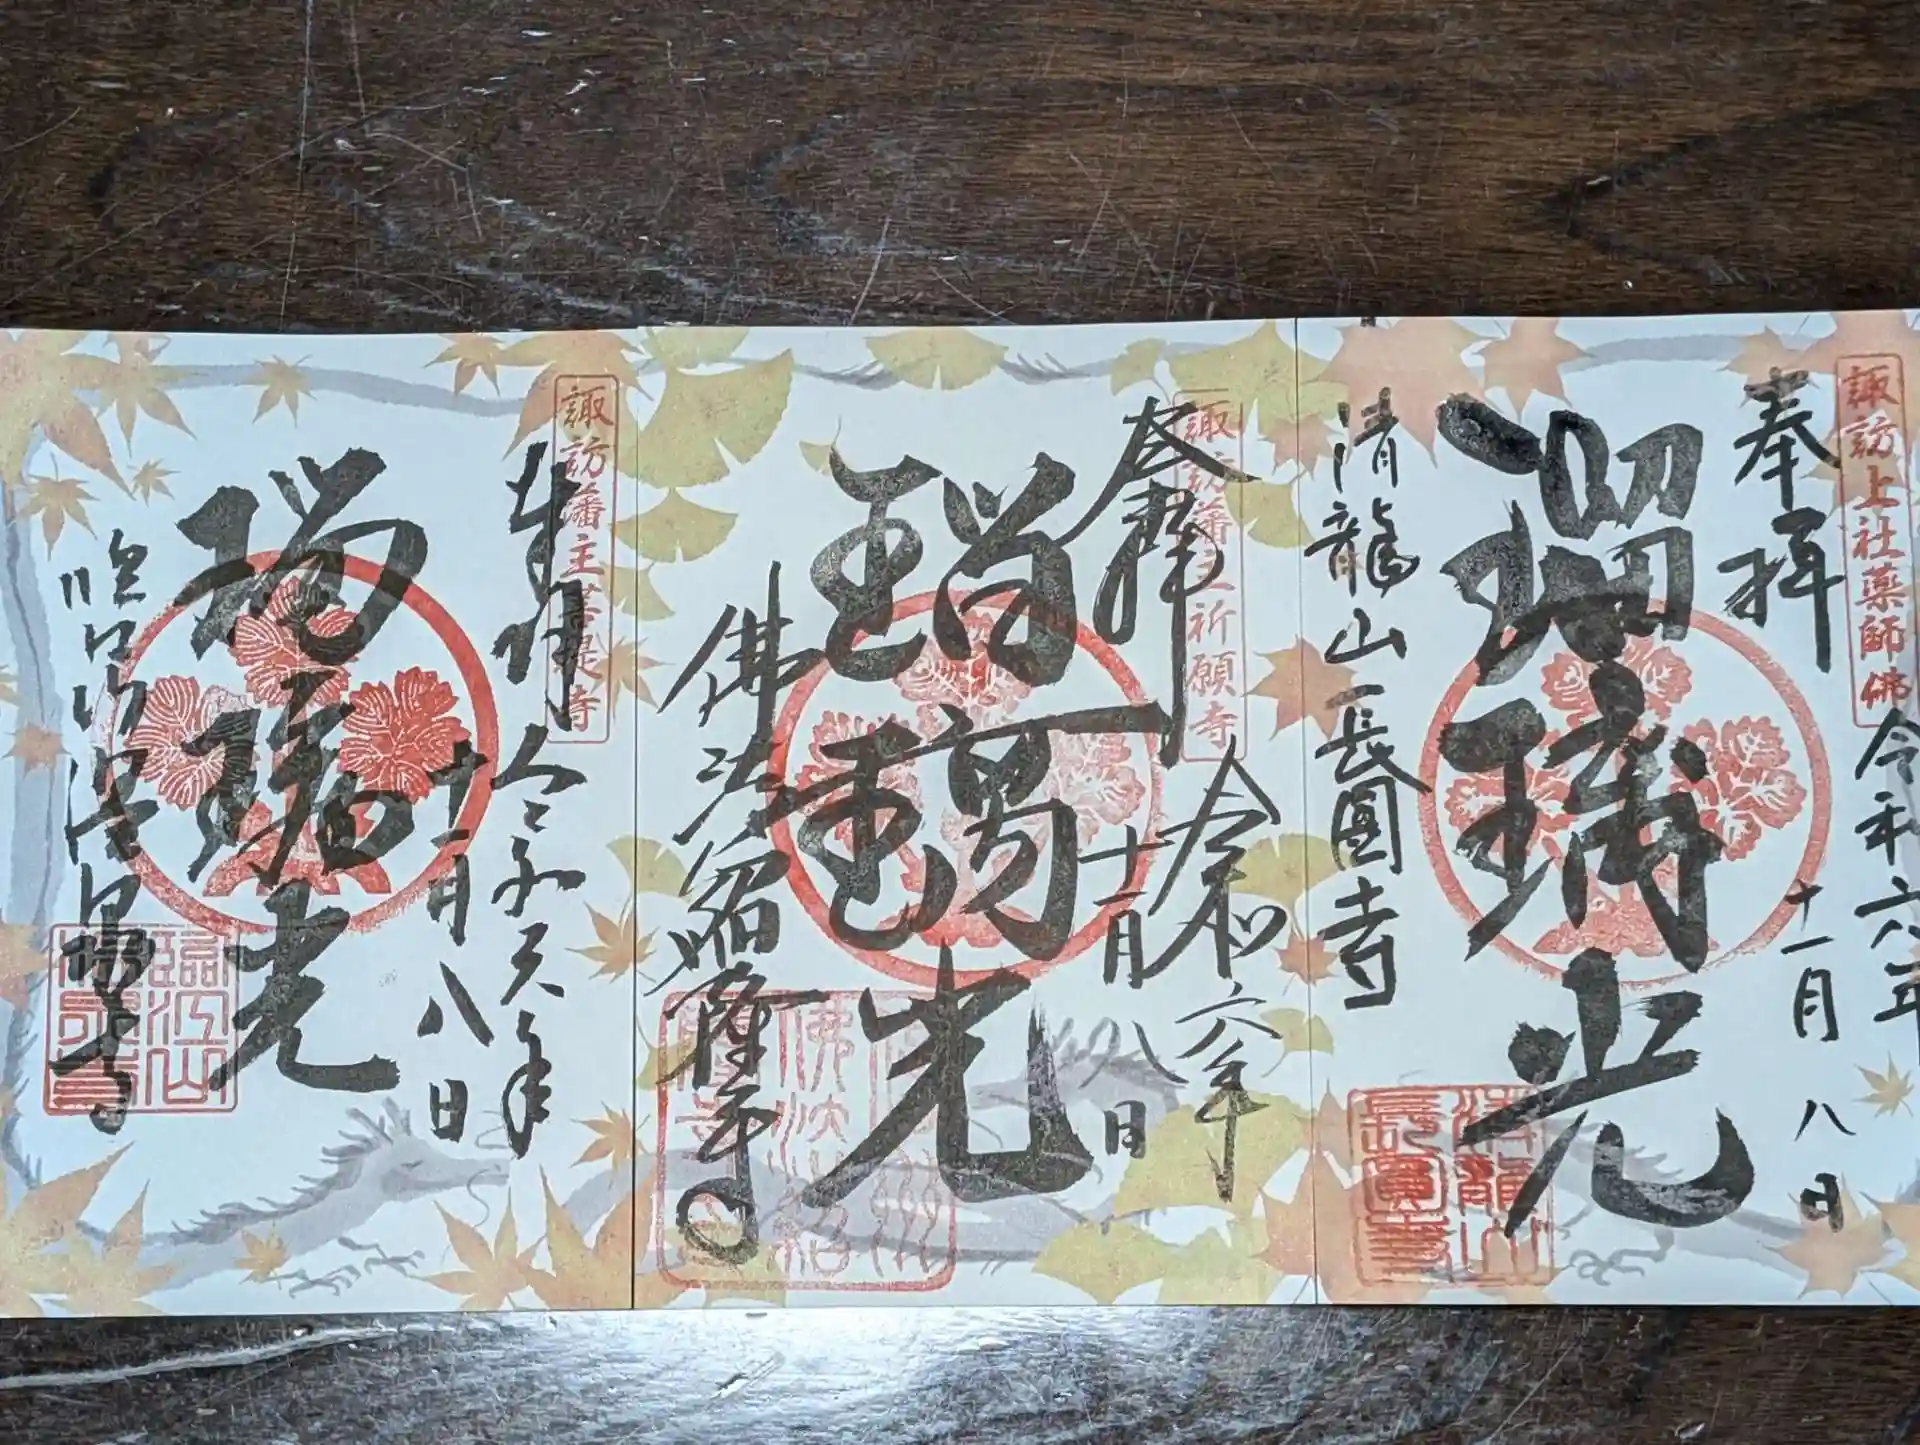 諏訪上社薬師佛
奉拝
令和六年
十一月八日
瑠璃光
清龍山長圓寺
諏訪藩主祈願寺
奉拝
令和六年
十一月八日
瑠璃光
佛法紹隆寺
諏訪藩主菩提寺
奉拝
令和六年
十一月八日
瑠璃光
臨江山